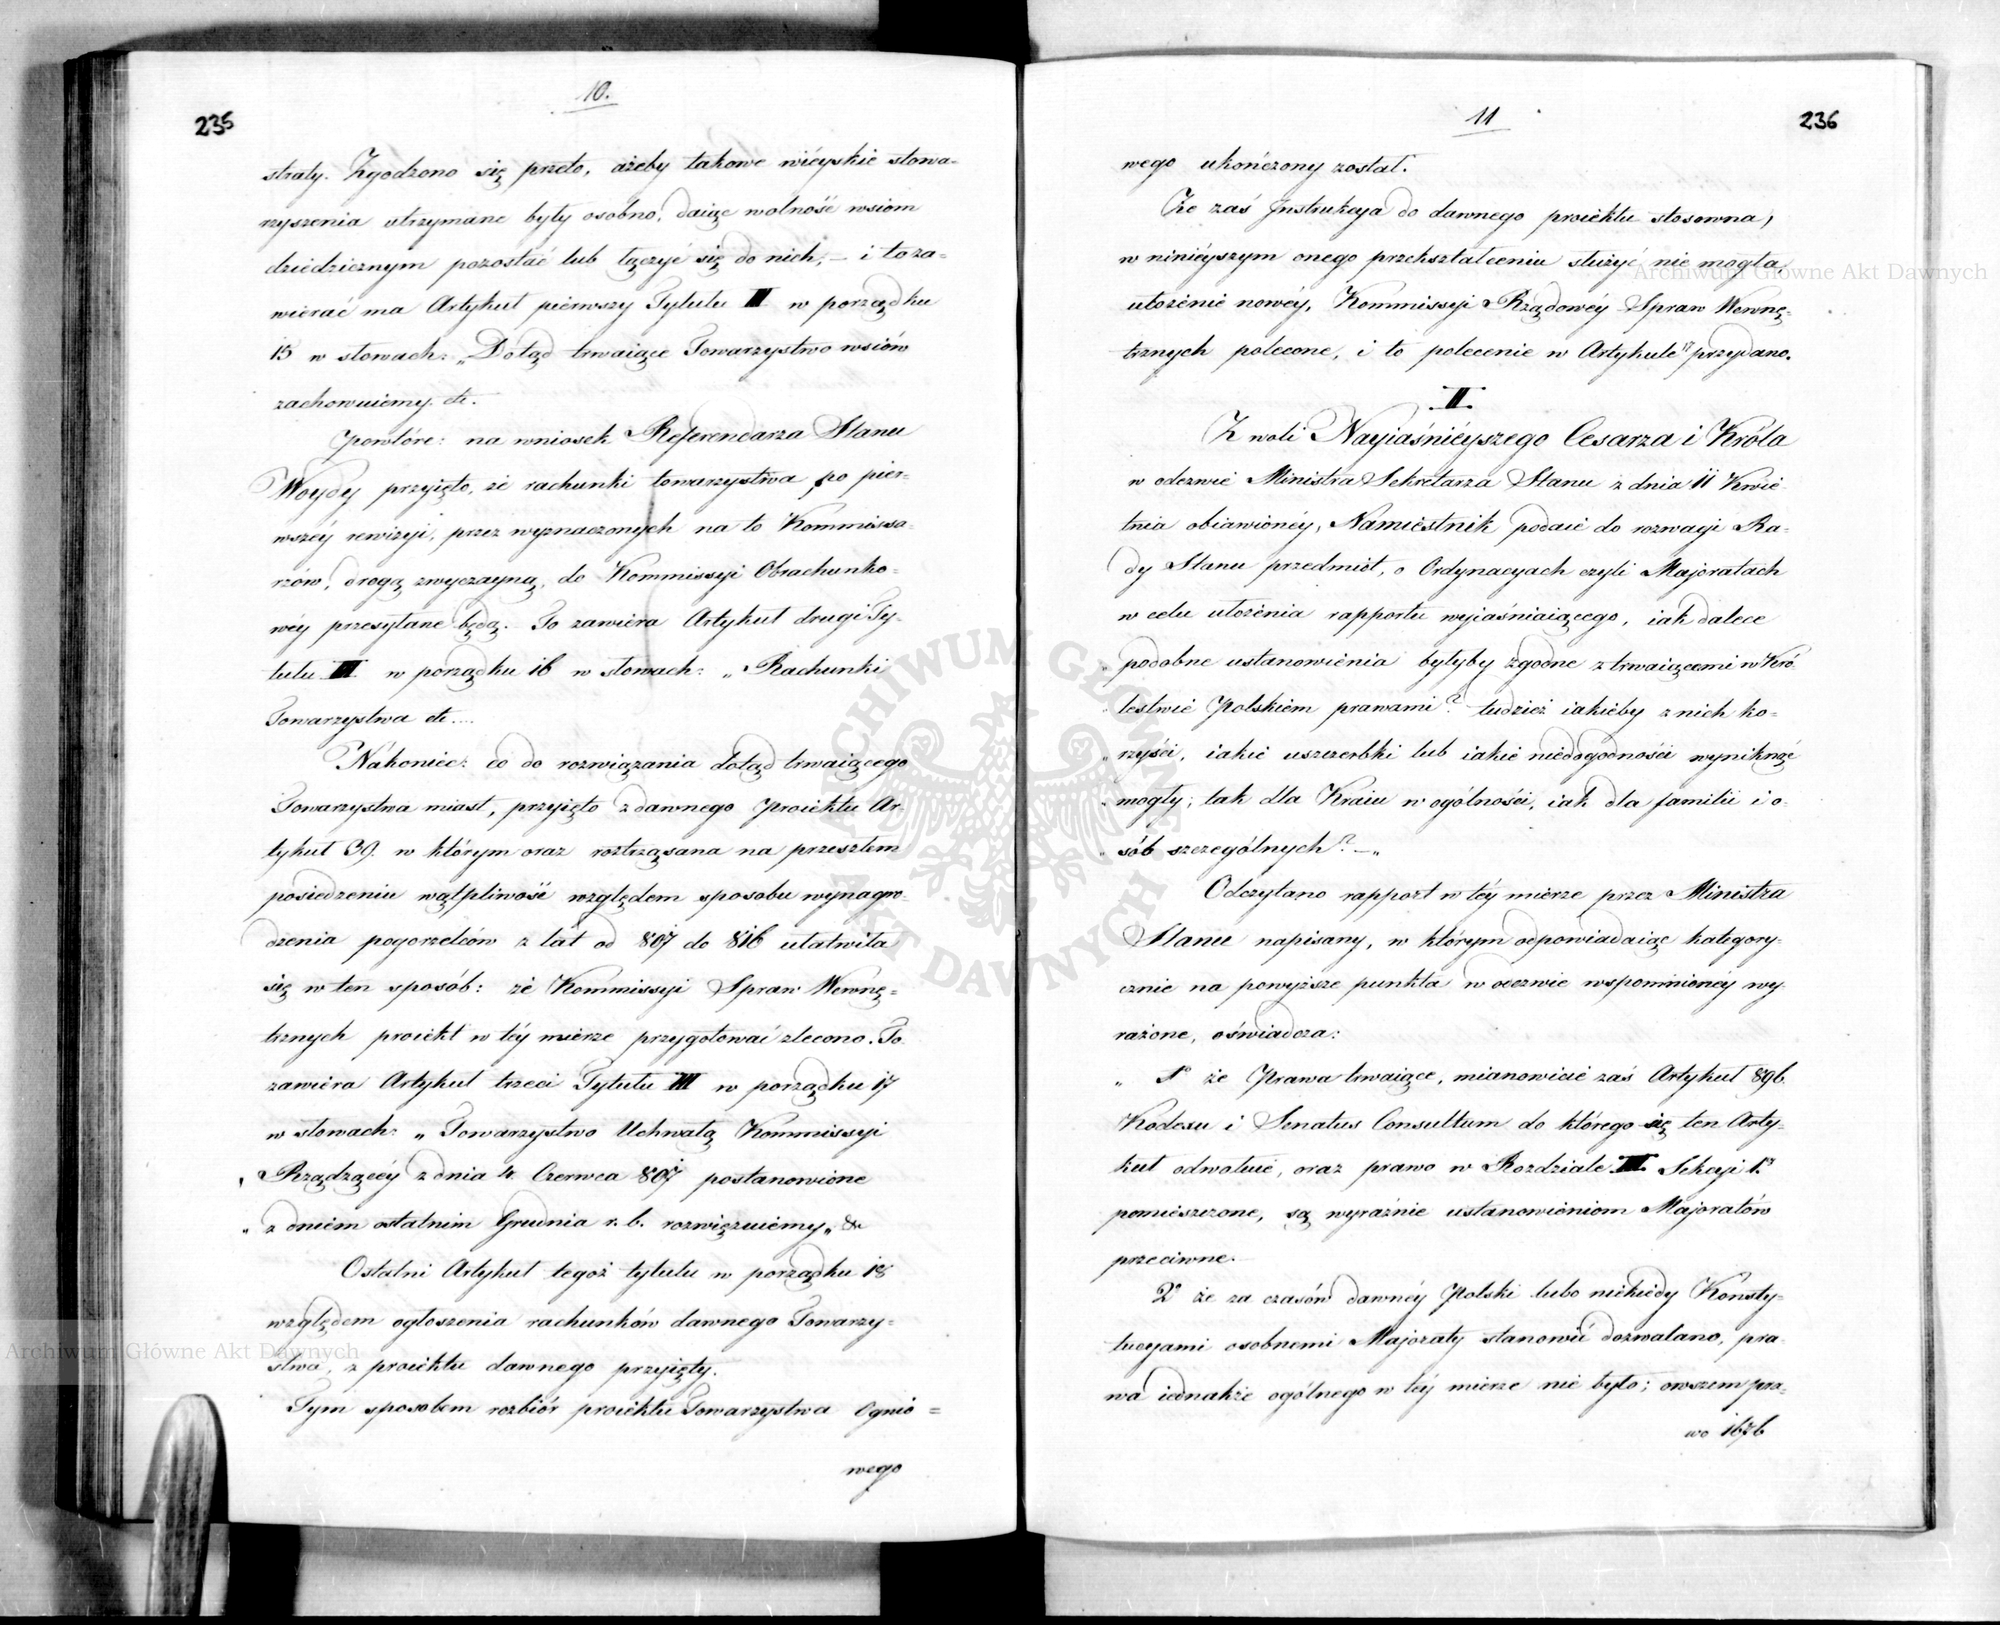 10.
235
straty. Zgodzono się przeto, ażeby takowe wieyskie stowa-
rzyszenia utrzymane były osobno, daiąc wolność wsiom
dziedzicznym pozostać lub łączyć się do nich, – i to za-
wierać ma Artykuł pierwszy Tytułu III w porządku
15 w słowach: „Dotąd trwaiące Towarzystwo wsiów
zachowuiemy. etc.
Powtóre: na wniosek Referendarza Stanu
Woydy przyięto, że rachunki towarzystwa po pier-
wszéy rewizyi, przez wyznaczonych na to Kommissa-
rzów, drogą zwyczayną, do Kommissyi Obrachunko-
wéy przesyłane będą. To zawiera Artykuł drugi Ty-
tułu III w porządku 16 w słowach: „Rachunki
Towarzystwa etc....
Nakoniec: co do rozwiązania dotąd trwaiącego
Towarzystwa miast, przyięto z dawnego Proiektu Ar-
tykuł 39. w którym oraz roztrząsana na przeszłem
posiedzeniu wątpliwość względem sposobu wynagro-
dzenia pogorzelców z lat od 807 do 816 ułatwiła
się w ten sposób: że Kommissyi Spraw Wewnę-
trznych proiekt w téy mierze przygotować zlecono. To
zawiera Artykuł trzeci Tytułu III w porządku 17
w słowach: „Towarzystwo Uchwałą Kommissyi
„Rządzącéy z dnia 4. Czerwca 807 postanowione
„z dniem ostatnim Grudnia r. b. rozwięzuiemy„ &c
Ostatni Artykuł tegoż tytułu w porządku 18
względem ogłoszenia rachunków dawnego Towarzy-
stwa, z proiektu dawnego przyięty.
Tym sposobem rozbiór proiektu Towarzystwa Ognio=
wego
11
236
wego ukończony został.
Że zaś Instrukcya do dawnego proiektu stosowna,
w ninieyszym onego przekształceniu służyć nie mogła
ułożenie nowéy, Kommissyi Rządowéy Spraw Wewnę-
trznych polecone, i to polecenie w Artykule 17 przydano.
II.
Z woli Nayiaśnieyszego Cesarza i Króla
w odezwie Ministra Sekretarza Stanu z dnia 11 Kwie-
tnia obiawionéy, Namiestnik podaie do rozwagi Ra-
dy Stanu przedmiot, o Ordynacyach czyli Majoratach
w celu ułożenia rapportu wyiaśniaiącego, iak dalece
„podobne ustanowienia byłyby zgodne z trwaiącemi w Kró-
„lestwie Polskiém prawami? tudzież iakieby z nich ko-
„rzyści, iakie uszczerbki lub iakie niedogodności wyniknąć
„mogły; tak dla Kraiu w ogólności, iak dla familii i o-
„sób szczególnych? –„
Odczytano rapport w téy mierze przez Ministra
Stanu napisany, w którym odpowiadaiąc kategory-
cznie na powyższe punkta w odezwie wspomnionéy wy-
rażone, oświadcza:
„ 1º że Prawa trwaiące, mianowicie zaś Artykuł 896.
Kodexu i Senatus Consultum do którego się ten Arty-
kuł odwołuie, oraz prawo w Rozdziale III Sekcyi 1.
pomieszczone, są wyraźnie ustanowieniom Majoratów
przeciwne.
2º że za czasów dawnéy Polski lubo niekiedy Konsty-
tucyami osobnemi Majoraty stanowić dozwalano, pra-
wa iednakże ogólnego w téy mierze nie było; owszem pra-
wo 1676
Archiwum Główne Akt Dawnych
Archiwum Główne Akt Dawnych
ARCHIWUM GŁÓWNE AKT DAWNYCH